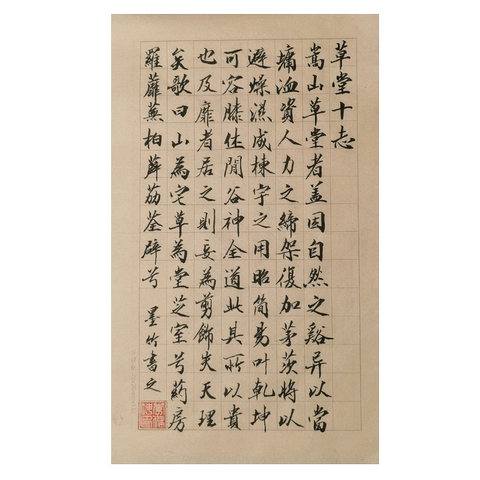 草堂十志
嵩山草堂者盖因自然之谿异以當
墉洫資人力之締架復加茅茨將以
避燥濕成棟宇之用昭簡易叶乾坤
可容膝休閒谷神全道此其所以貴
也及靡者居之則妄為剪飾失天理
矣歌曰山為宅草為堂芝室兮葯房
羅蘼蕪柏薜荔荃辟兮
墨竹書之